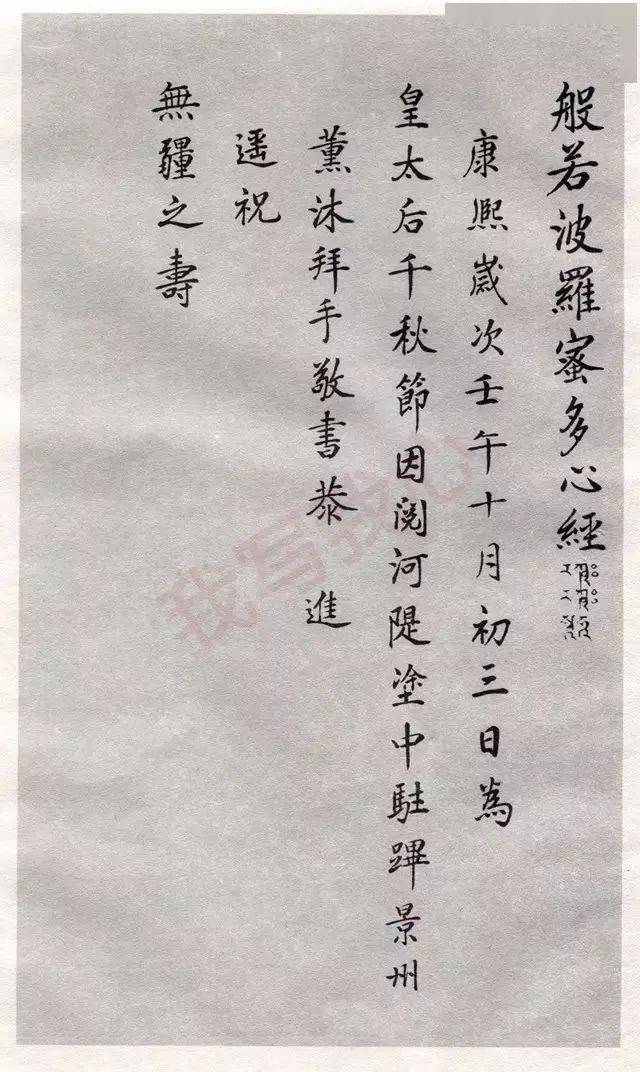 般若波羅蜜多心經
康熙歲次壬午十月初三日為
皇太后千秋節因閱河隄塗中駐蹕景州
薰沐拜手敬書恭進
遥祝
無疆之壽
我写我心